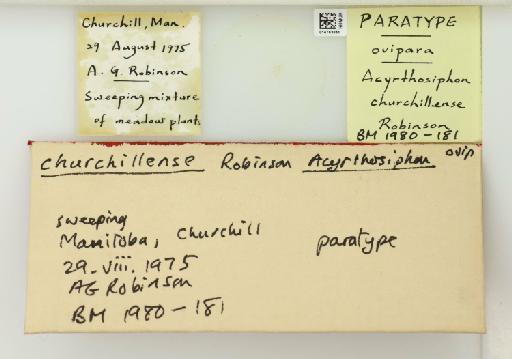 Churchill, Man.
29 August 1975
A. G. Robinson
Sweeping mixture
of meadow plants
PARATYPE
ovipara
Acyrthosiphon
churchillense
Robinson
BM 1980-181
churchillense Robinson Acyrthosiphon ovip
sweeping
Manitoba, Churchill
29. viii. 1975
AG Robinson
BM 1980-181
paratype